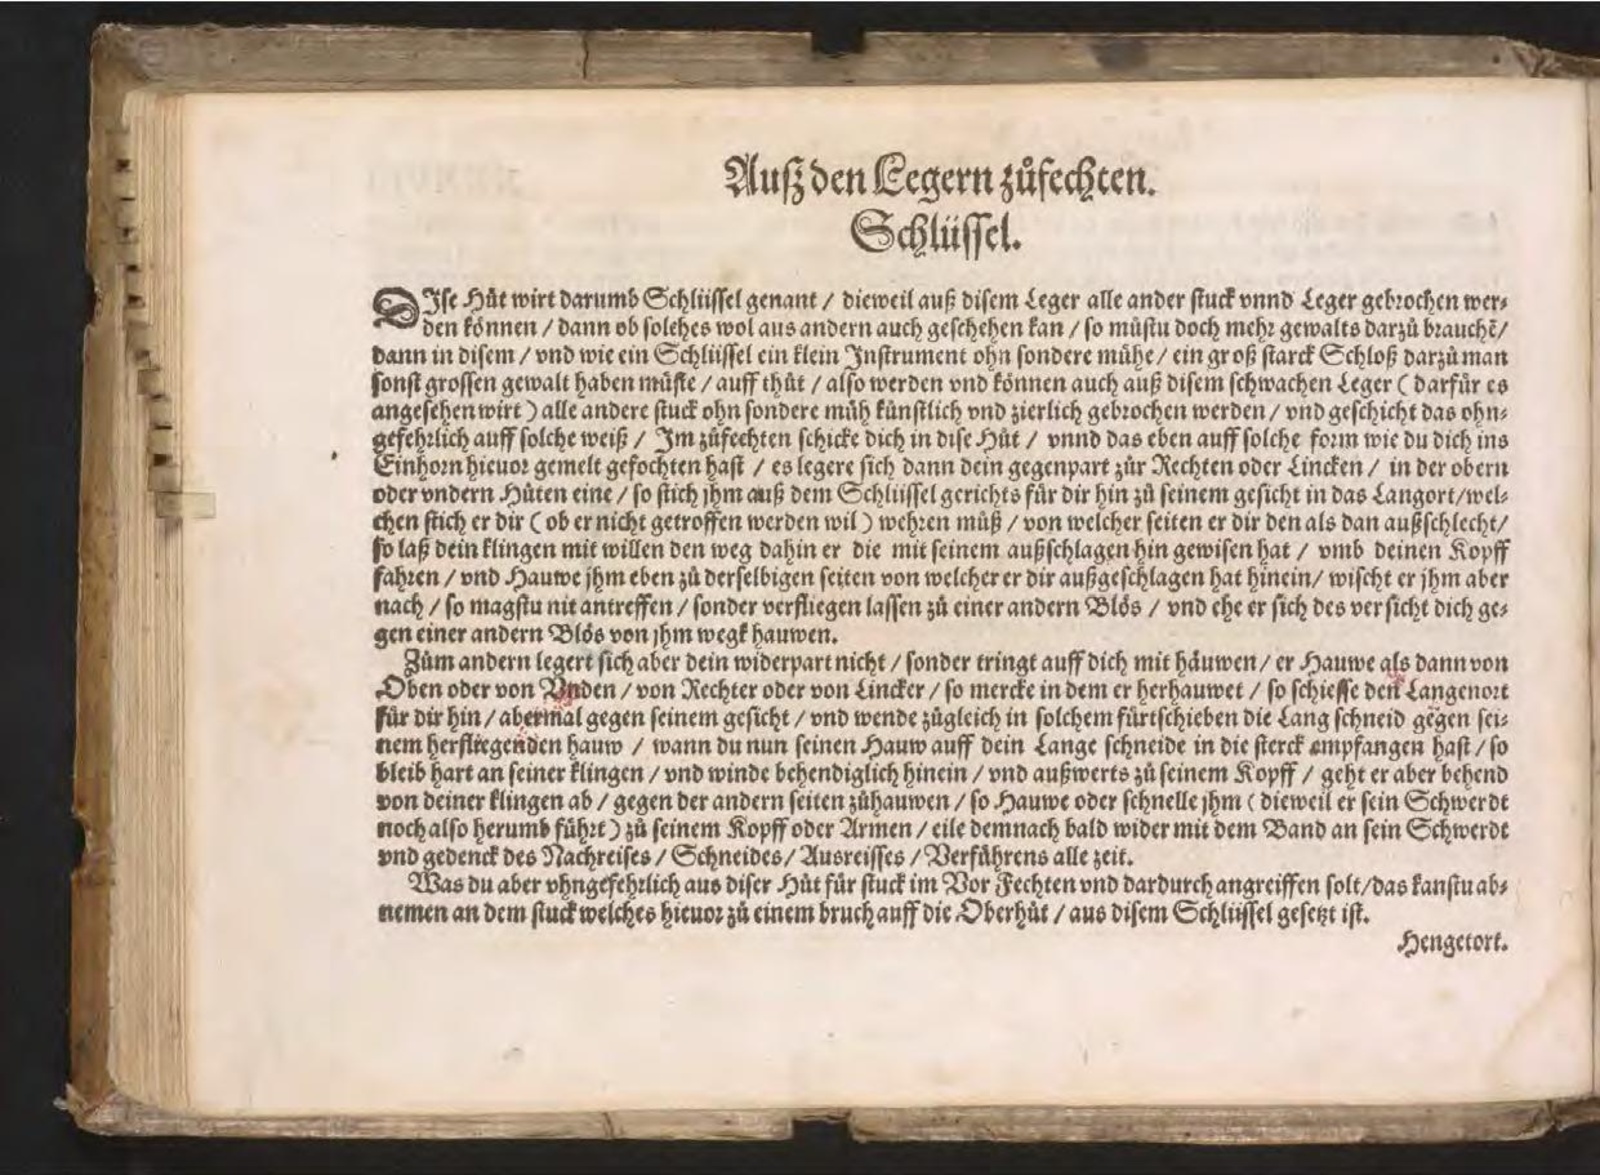 Auſz den Legern zůfechten.
Schlüſſel.
DIſe Hůt wirt darumb Schlüſſel genant / dieweil auß diſem Leger alle ander ſtuck vnnd Leger gebrochen wer⸗
den können / dann ob ſolches wol aus andern auch geſchehen kan / ſo můſtu doch mehr gewalts darzů brauchē/
dann in diſem / vnd wie ein Schlüſſel ein klein Inſtrument ohn ſondere mühe / ein groß ſtarck Schloß darzů man
ſonſt groſſen gewalt haben müſte / auff thůt / alſo werden vnd können auch auß diſem ſchwachen Leger ( darfür es
angeſehen wirt ) alle andere ſtuck ohn ſondere müh künſtlich vnd zierlich gebrochen werden / vnd geſchicht das ohn⸗
gefehrlich auff ſolche weiß / Im zůfechten ſchicke dich in diſe Hůt / vnnd das eben auff ſolche form wie du dich ins
Einhorn hieuor gemelt gefochten haſt / es legere ſich dann dein gegenpart zůr Rechten oder Lincken / in der obern
oder vndern Hůten eine / ſo ſtich jhm auß dem Schlüſſel gerichts für dir hin zů ſeinem geſicht in das Langort/wel⸗
chen ſtich er dir ( ob er nicht getroffen werden wil ) wehren můß / von welcher ſeiten er dir den als dan außſchlecht/
ſo laß dein klingen mit willen den weg dahin er die mit ſeinem außſchlagen hin gewiſen hat / vmb deinen Kopff
fahren / vnd Hauwe jhm eben zů derſelbigen ſeiten von welcher er dir außgeſchlagen hat hinein/ wiſcht er jhm aber
nach / ſo magſtu nit antreffen / ſonder verfliegen laſſen zů einer andern Blös / vnd ehe er ſich des verſicht dich ge⸗
gen einer andern Blös von jhm wegk hauwen.
Zům andern legert ſich aber dein widerpart nicht / ſonder tringt auff dich mit häuwen / er Hauwe als dann von
Oben oder von Vnden / von Rechter oder von Lincker / ſo mercke in dem er herhauwet / ſo ſchieſſe den Langenort
für dir hin / abermal gegen ſeinem geſicht / vnd wende zůgleich in ſolchem fürtſchieben die Lang ſchneid gegen ſei⸗
nem herfliegenden hauw / wann du nun ſeinen Hauw auff dein Lange ſchneide in die ſterck empfangen haſt / ſo
bleib hart an ſeiner klingen / vnd winde behendiglich hinein / vnd außwerts zů ſeinem Kopff / geht er aber behend
von deiner klingen ab / gegen der andern ſeiten zůhauwen / ſo Hauwe oder ſchnelle jhm ( dieweil er ſein Schwerdt
noch alſo herumb führt ) zů ſeinem Kopff oder Armen / eile demnach bald wider mit dem Band an ſein Schwerdt
vnd gedenck des Nachreiſes / Schneides / Ausreiſſes / Verführens alle zeit.
Was du aber vhngefehrlich aus diſer Hůt für ſtuck im Vor Fechten vnd dardurch angreiffen ſolt/das kanſtu ab⸗
nemen an dem ſtuck welches hieuor zů einem bruch auff die Oberhůt / aus diſem Schlüſſel geſetzt iſt.
Hengetort.